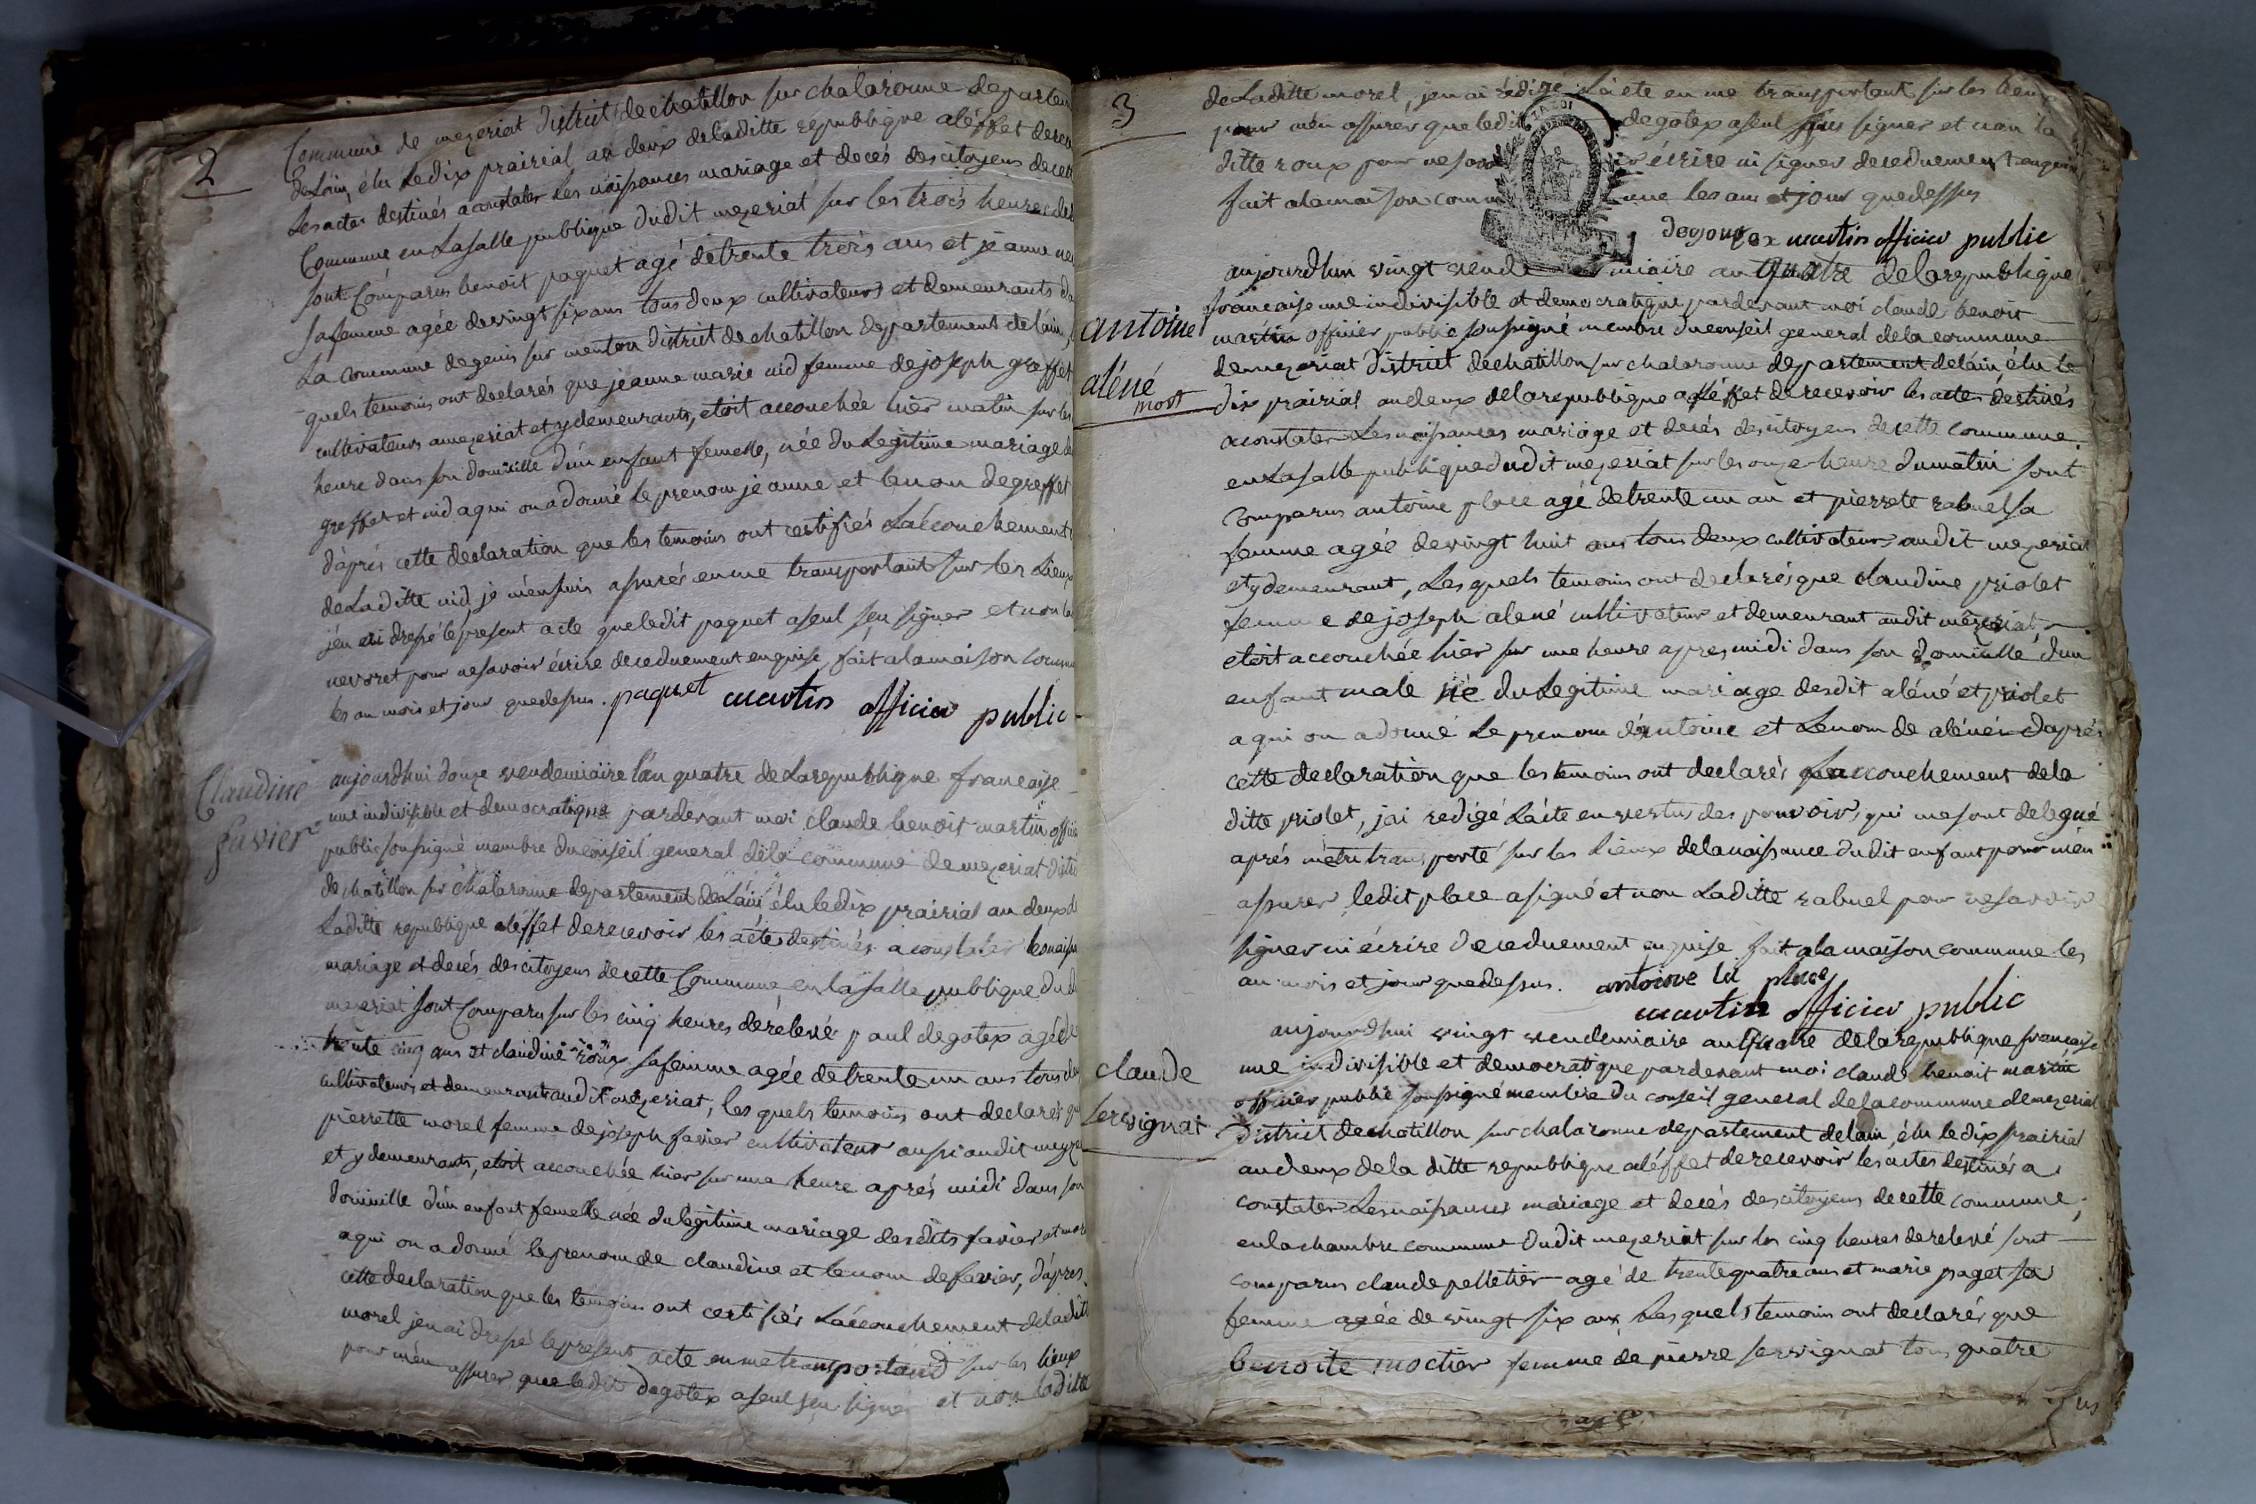 2
Commune de mezeriat district de chatillon sur chalaronne departem
de Lain, élu le dix prairial an deux de laditte republique aléffet de rece
Les actes destinés a constater les naissances mariage et decés des citoyens de cett
Commune en La salle publique dudit mezeriat sur les trois heures de
sont Comparus benoit paquet agé de trente trois ans et jeanne ne
sa femme agée de vingt six ans tous deux cultivateurs et demeurants d
La commune de genis sur menton district de chatillon departement de lain,
quels temoins ont declarés que jeanne marie nid femme de joseph greffet
cultivateurs a mezeriat et y demeurants, etoit accouchée hier matin sur les
heure dans son domicille d'un enfant femelle, née du Legitime mariage de
greffet et nid a qui on a donné le prenom jeanne et le nom de greffet
d'aprés cette declaration que les temoins ont certifiés L'accouchement
de Laditte nid, je m'en suis assurés en me transportant sur les Lieux
j'en ai dressé le present acte que ledit paquet a seul seu signer et non la
nevoret pour ne savoir écrire de ce duement enquise, fait a la maison commu
les an mois et jour que dessus. paquet martin officier public
Claudine
favier
aujourdhui douze vendemiaire l'an quatre de La republique francaise
une indivisible et democratique pardevant moi claude benoit martin offici
public soussigné membre du conseil general de la commune de mezeriat distri
de chatillon sur chalaronne departement de Lain élu le dix prairial an deux de
Laditte republique aléffet de recevoir les actes destinés a constater les naissan
mariage et decés des citoyens de cette Commune, en la salle publique dud
mezeriat sont Comparu sur les cinq heures de relevé paul degotex agé de
trente cinq ans et claudine roux sa femme agée de trente un ans tous de
cultivateurs et demeurant audit mezeriat, les quels temoins ont declarés qu
pierrette morel femme de joseph favier cultivateur aussi audit mezer
et y demeurants, etoit accouchée hier sur une heure aprés midi dans son
domicille d'un enfant femelle née du legitime mariage desdits favier et mor
a qui on a donné le prenom de claudine et le nom de favier, d'aprés
cette declaration que les temoins ont certifiés L'accouchement de laditt
morel jen ai dressé le present acte en me transportand sur les lieux
pour m'en assurer que ledit degotex a seul seu signer et non laditte
3
de Laditte morel, jen ai rédigé L'acte en me transportant sur les lieux
pour m'en assurer que ledit degotex a seul seus signer et non la
ditte roux pour ne savoir écrire ni signer de ce duement enquise
fait a la maison commune les an et jour que dessus
martin officier public
antoine
aléné
mort
aujourdhui vingt vende miaire an quatre de la republique
francaise une indivisible et democratique pardevant moi claude benoit
martin officier public soussigné membre du conseil general de la commune
de mezeriat district de chatillon sur chalaronne departement de lain élu le
dix prairial an deux de la republique a l'éffet de recevoir les actes destinés
a constater Les naissances mariage et decés des citoyens de cette commune
en La salle publique dudit mezeriat sur les onze heure du matin sont
comparus antoine place agé de trente un an et pierrete rabuel sa
femme agée de vingt huit ans tous deux cultivateurs audit mezeriat
et y demeurant, Les quels temoins ont declarés que claudine priolet
femme de joseph alené cultivateur et demeurant audit mezeriat
etoit accouchée hier sur une heure apres midi dans son domicille d'un
enfant male né du Legitime mariage desdit aléné et priolet
a qui on a donné Le prenom d'antoine et Le nom de aléné d'aprés
cette declaration que les temoins ont declarés L'accouchement de la
ditte priolet, j'ai redigé L'acte en vertus des pouvoirs qui me sont delegué
aprés m'etre transporté sur les Lieux de la naissance dudit enfant pour m'en
assurer, ledit place a signé et non Laditte rabuel pour ne savoir
signer ni écrire de ce duement enquise fait a la maison commune les
an mois et jour que dessus. antoine la place
martin officier public
claude
servignat
aujourdhui vingt vendemiaire an quatre de la republique francaise
une indivisible et democratique pardevant moi claude benoit martin
officier public soussigné membre du conseil general de la commune de mezeriat
district de chatillon sur chalaronne departement de lain, élu le dix prairial
an deux de la ditte republique aléffet de recevoir les actes destinés a
constater Les naissances mariage et decés des citoyens de cette commune,
en la chambre commune dudit mezeriat sur les cinq heures de relevé sont
comparus claude pelletier agé de trente quatre ans et marie paget sa
femme agée de vingt six ans, Les quels temoins ont declarés que
benoite moctier femme de pierre servignat tous quatre